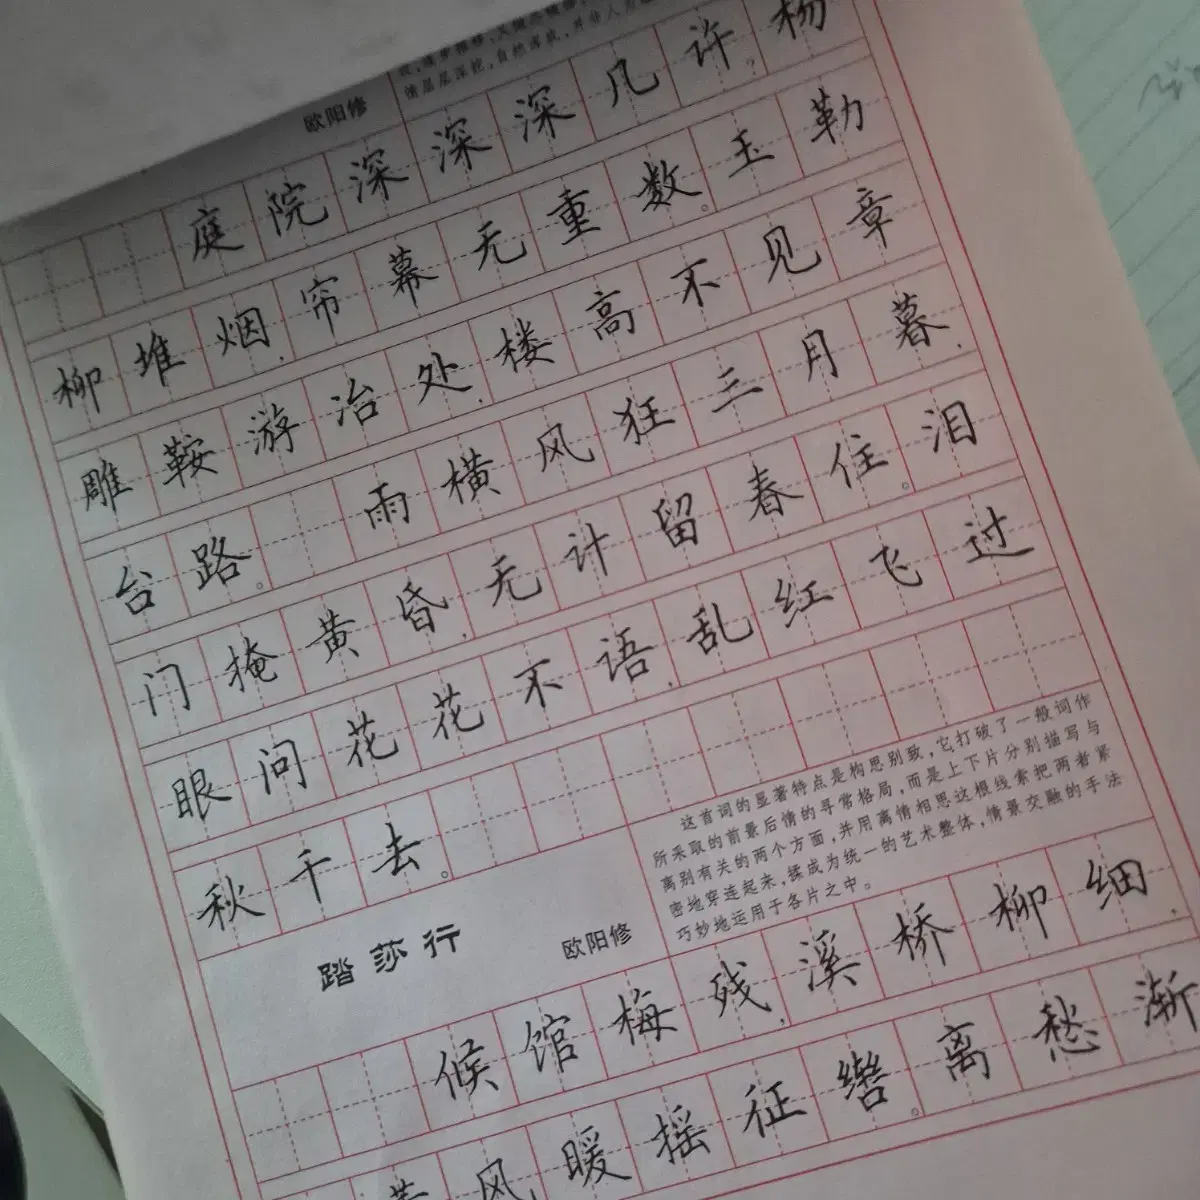 情层层深挖，自然浑成，并非人为
欧阳修
庭院深深深几许？杨
柳堆烟，帘幕无重数。玉勒
雕鞍游冶处，楼高不见章
台路。 雨横风狂三月暮，
门掩黄昏，无计留春住。泪
眼问花花不语，乱红飞过
秋千去。
这首词的显著特点是构思别致，它打破了一般词作
所采取的前景后情的寻常格局，而是上下片分别描写与
离别有关的两个方面，并用离情相思这根线索把两者紧
密地穿连起来，揉成为统一的艺术整体，情景交融的手法
巧妙地运用于各片之中。
踏莎行
欧阳修
候馆梅残，溪桥柳细，
风暖摇征辔。离愁渐